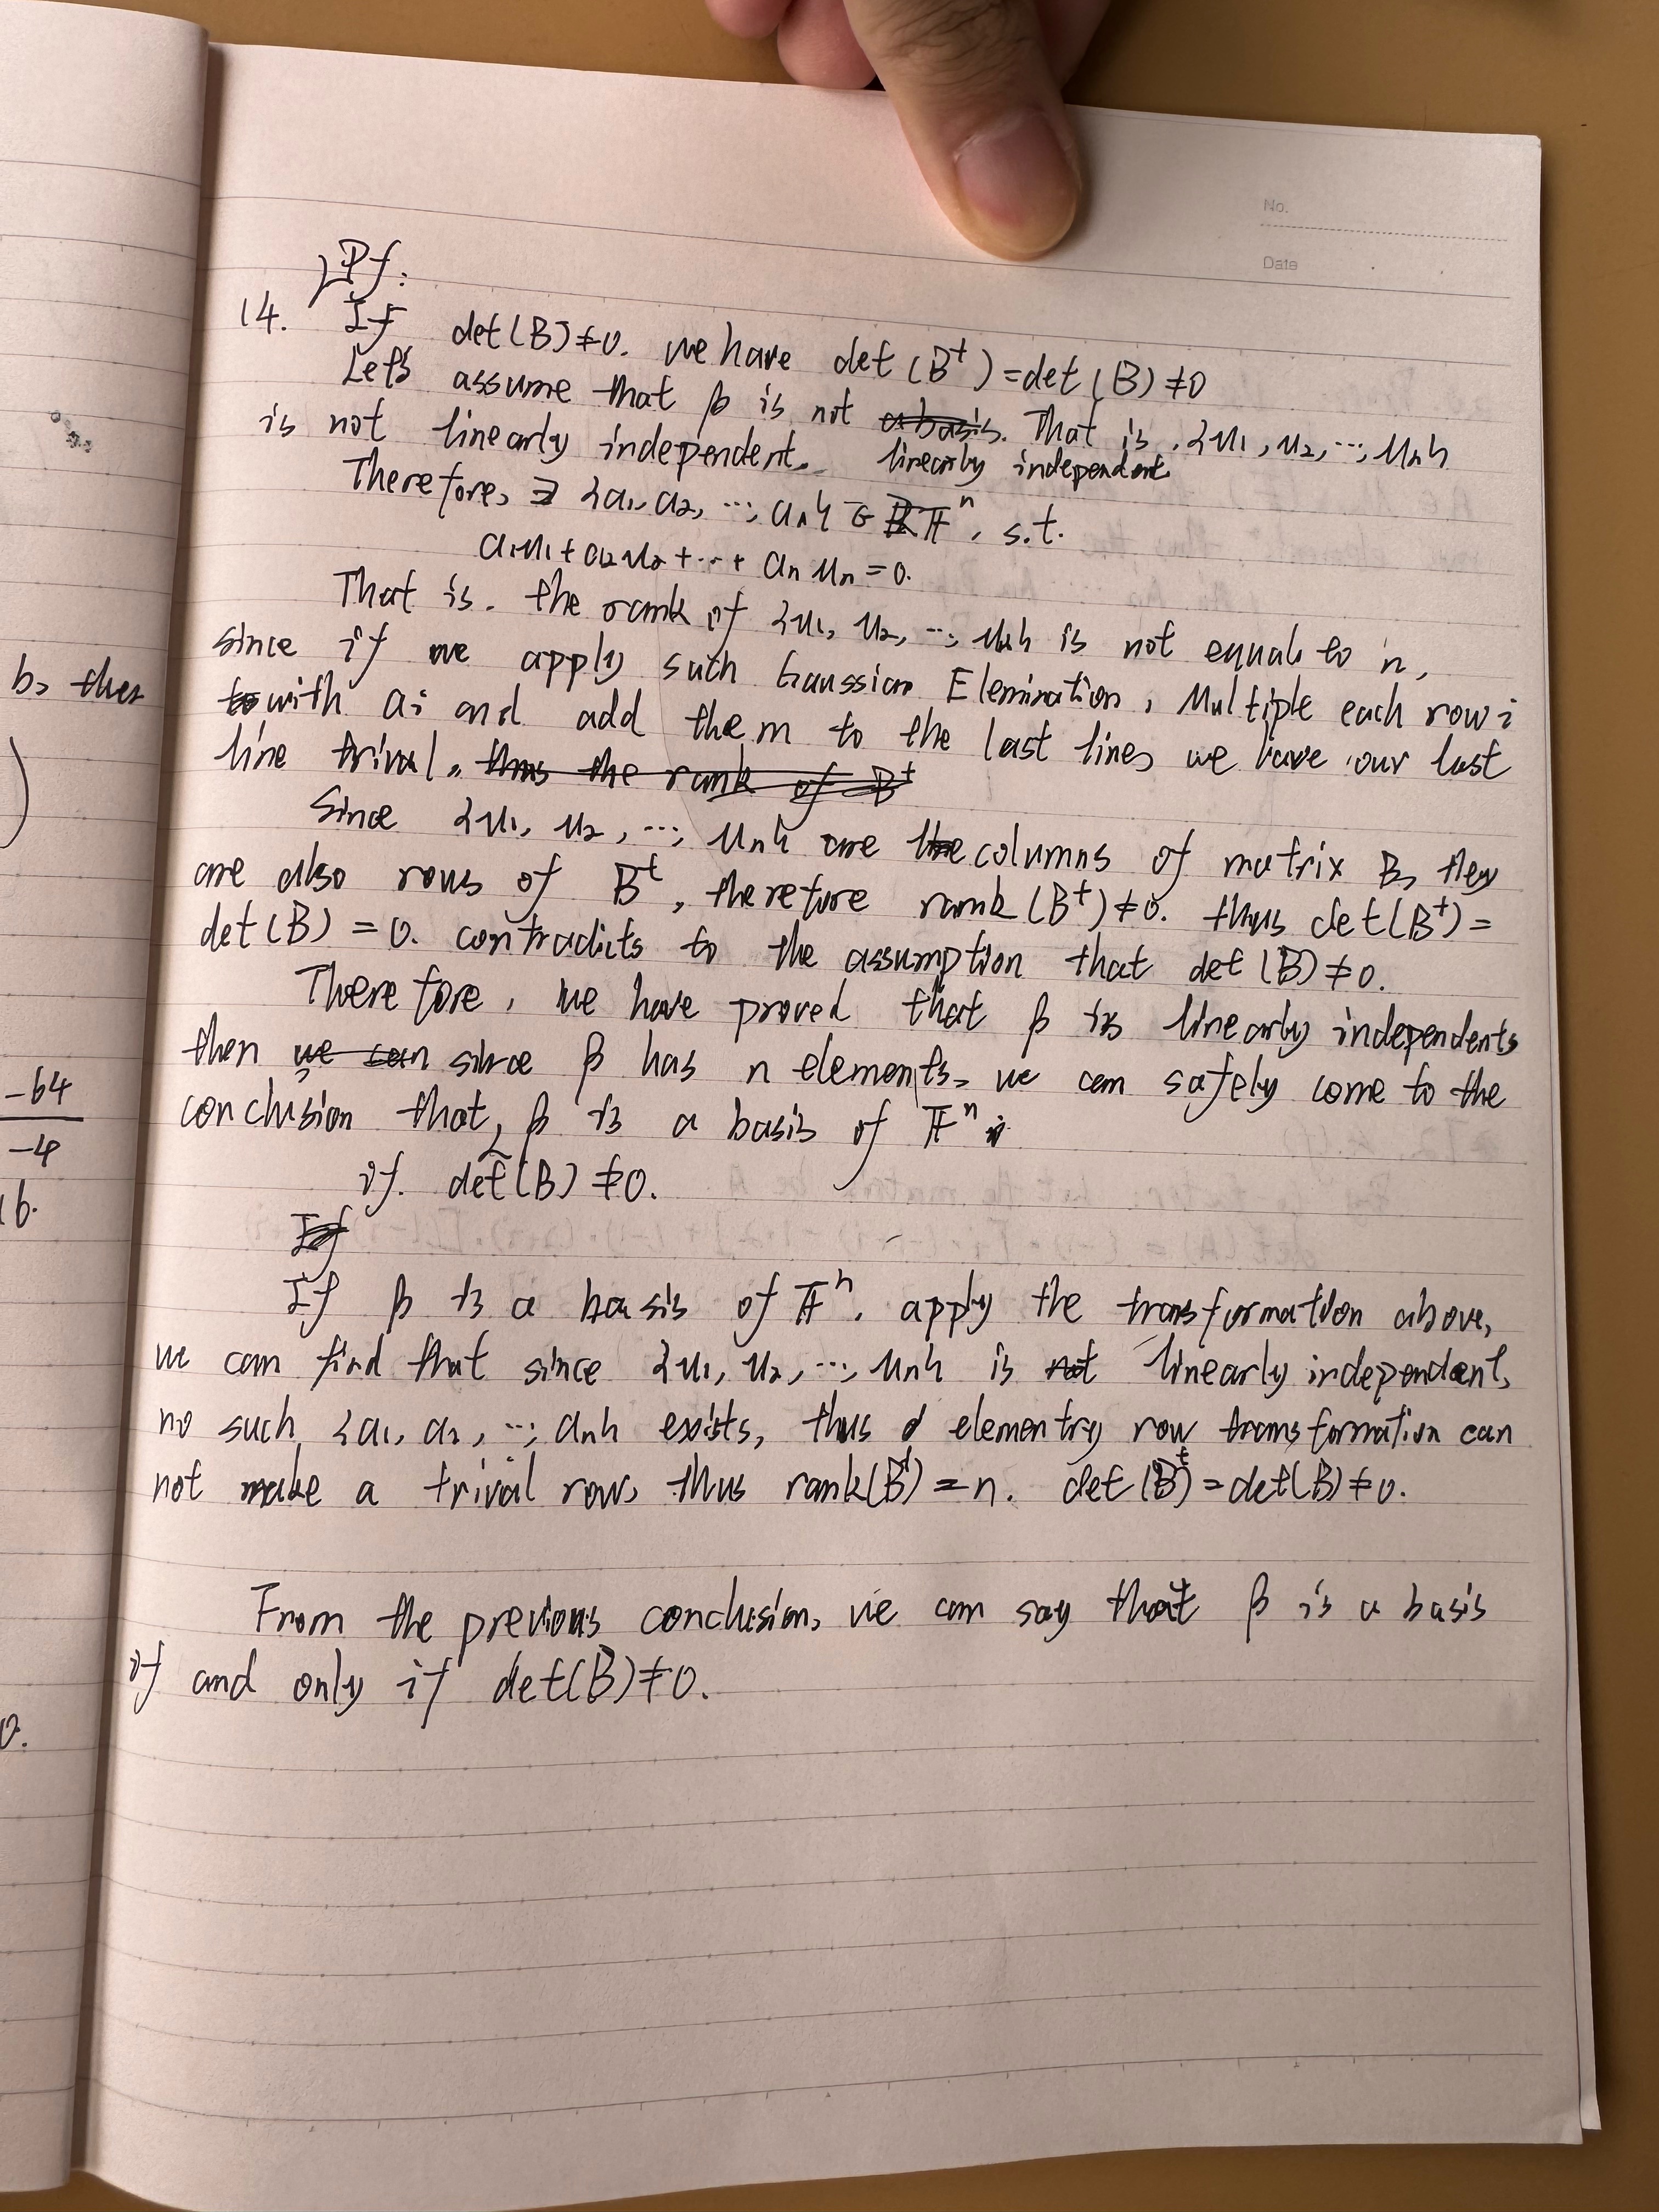 No.
Date
Pf:
14. If det(B)≠0. we have det(B^t)=det(B)≠0
Let's assume that β is not a basis. That is. {u1, u2, ..., un}
linearly independent
is not linearly independent.
Therefore, ∃ {a1, a2, ..., an} ∈ F^n, s.t.
a1u1+a2u2+...+anun=0.
That is. the rank of {u1, u2, ..., un} is not equal to n,
since if we apply such Gaussian Elemination, Multiple each row i
to with ai and add them to the last line, we have our last
line trival. thus the rank of B^t
Since {u1, u2, ..., un} are the columns of matrix B, they
are also rows of B^t, therefore rank(B^t)≠0. thus det(B^t)=
det(B)=0. contradicts to the assumption that det(B)≠0.
Therefore, we have proved that β is linearly independent,
then we can since β has n elements, we can safely come to the
conclusion that, β is a basis of F^n
if. det(B)≠0.
If
If β is a basis of F^n. apply the transformation above,
we can find that since {u1, u2, ..., un} is not linearly independent,
no such {a1, a2, ..., an} exists, thus elementry row transformation can
not make a trival row, thus rank(B^t)=n. det(B^t)=det(B)≠0.
From the previous conclusion, we can say that β is a basis
if and only if det(B)≠0.
b, then
)
-64
-4
16.
0.